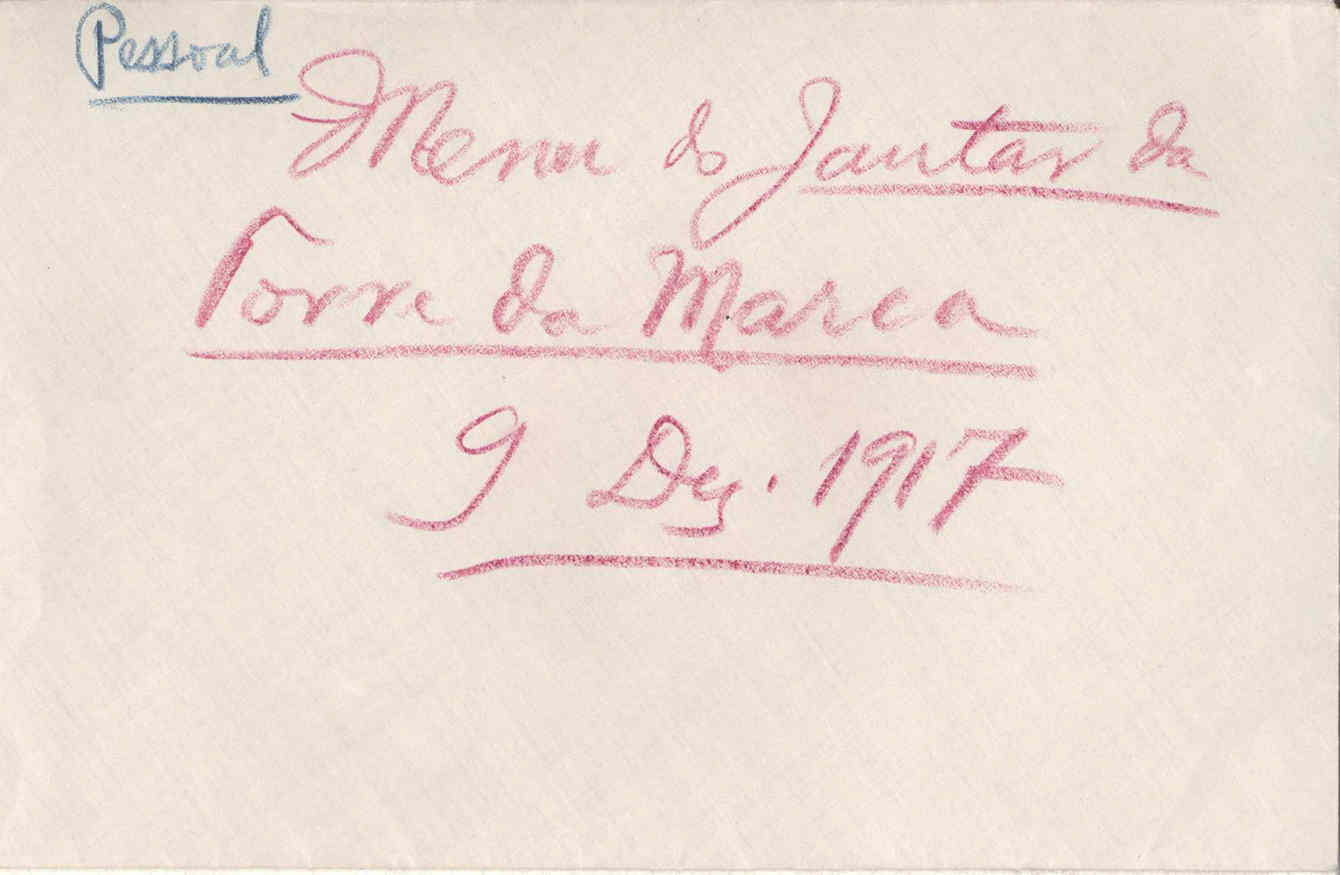 Pessoal
Menu do Jantar da
Torre da Marca
9 Dez. 1917